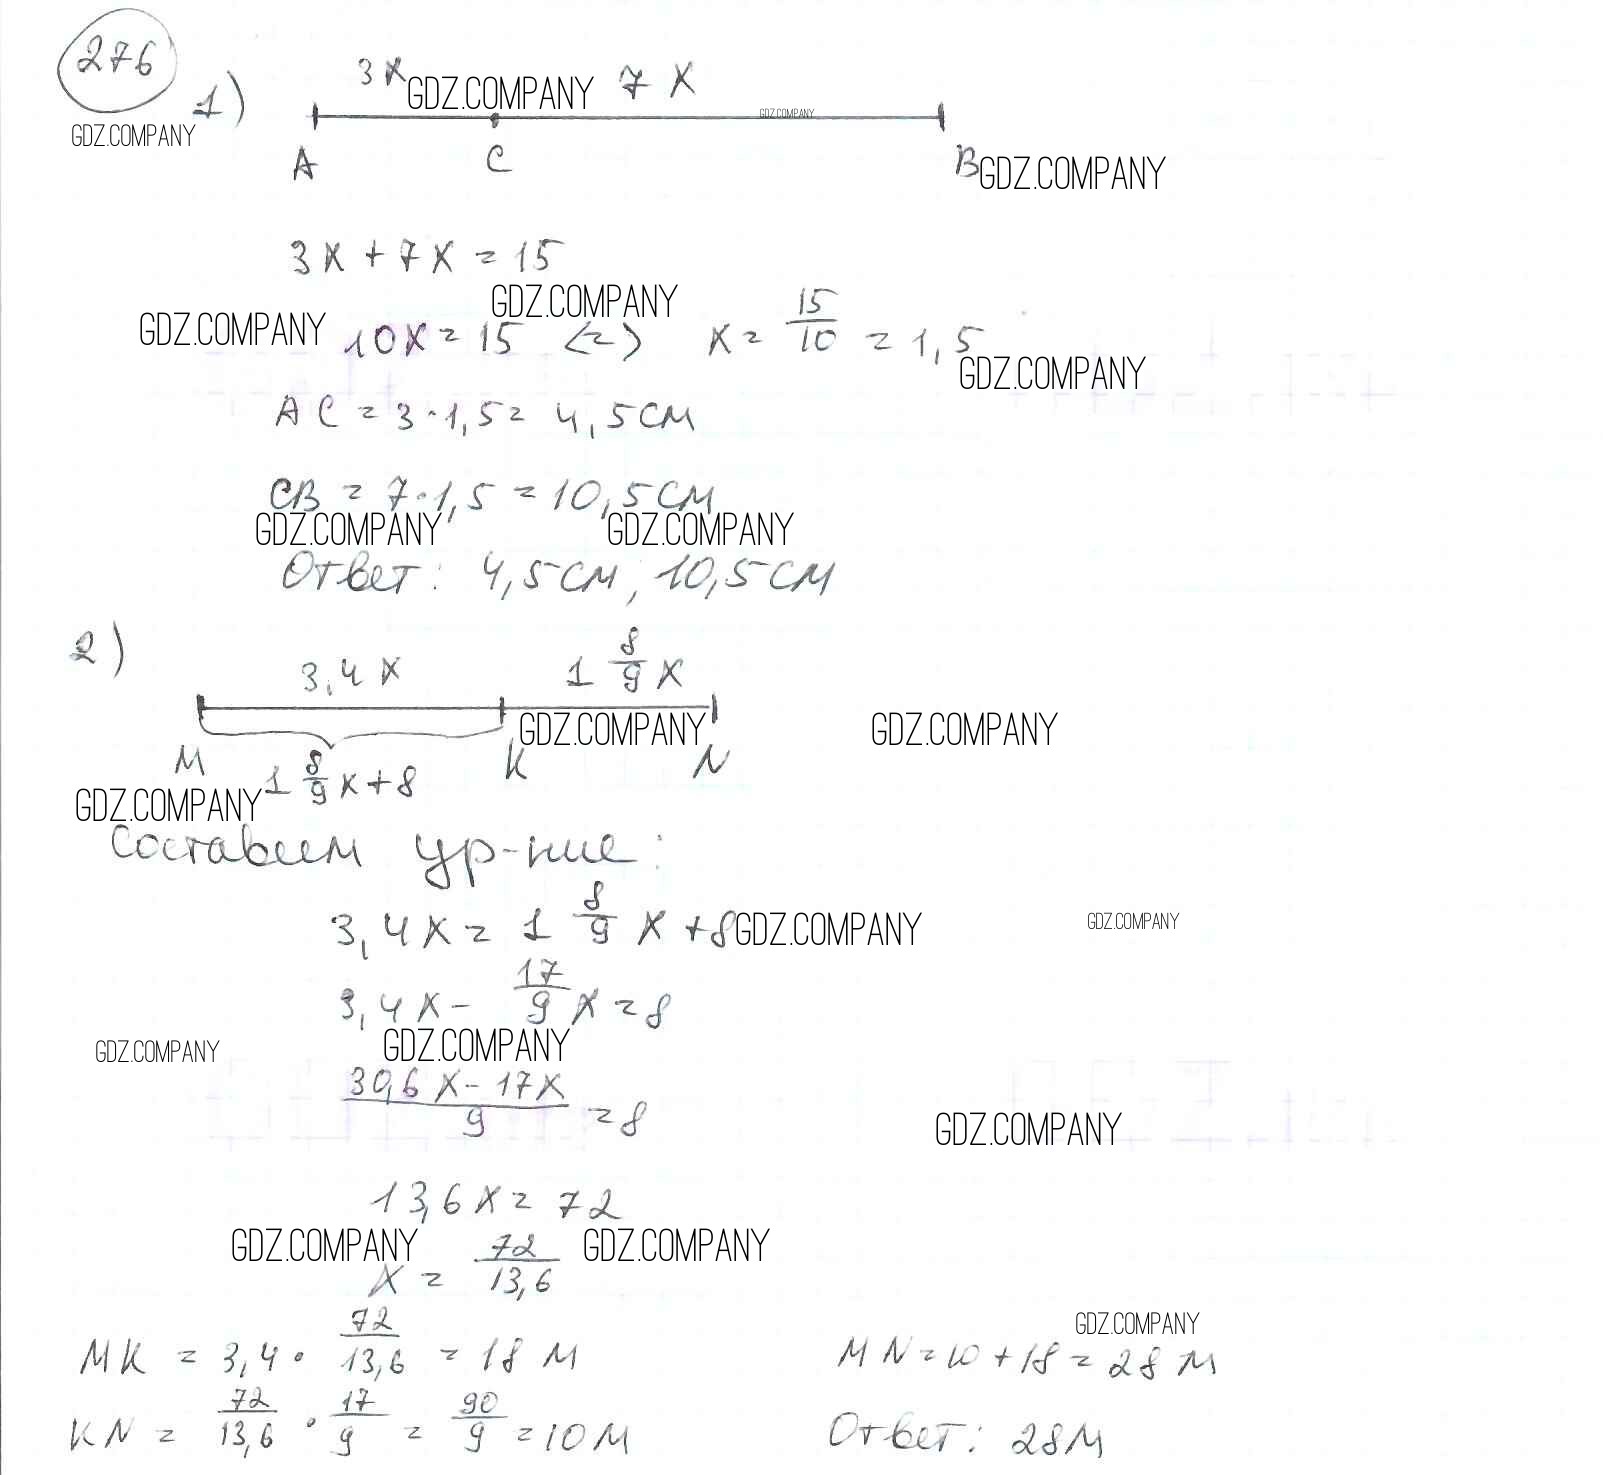 276
GDZ.COMPANY
1)
3x GDZ.COMPANY 7x
GDZ.COMPANY
A C B GDZ.COMPANY
3x + 7x = 15
GDZ.COMPANY
GDZ.COMPANY 10x = 15 <=> x = 15/10 = 1,5
GDZ.COMPANY
AC = 3·1,5 = 4,5 см
CB = 7·1,5 = 10,5 см
GDZ.COMPANY GDZ.COMPANY
Ответ: 4,5 см; 10,5 см
2)
3,4x 1 8/9 x
GDZ.COMPANY GDZ.COMPANY
M K N
1 8/9 x + 8
GDZ.COMPANY
Составим ур-ние:
3,4x = 1 8/9 x + 8 GDZ.COMPANY GDZ.COMPANY
3,4x - 17/9 x = 8
GDZ.COMPANY GDZ.COMPANY
(30,6x - 17x)/9 = 8
GDZ.COMPANY
13,6x = 72
GDZ.COMPANY GDZ.COMPANY
x = 72/13,6
GDZ.COMPANY
MK = 3,4 · 72/13,6 = 18 м
KN = 72/13,6 · 17/9 = 90/9 = 10 м
MN = 10 + 18 = 28 м
Ответ: 28 м